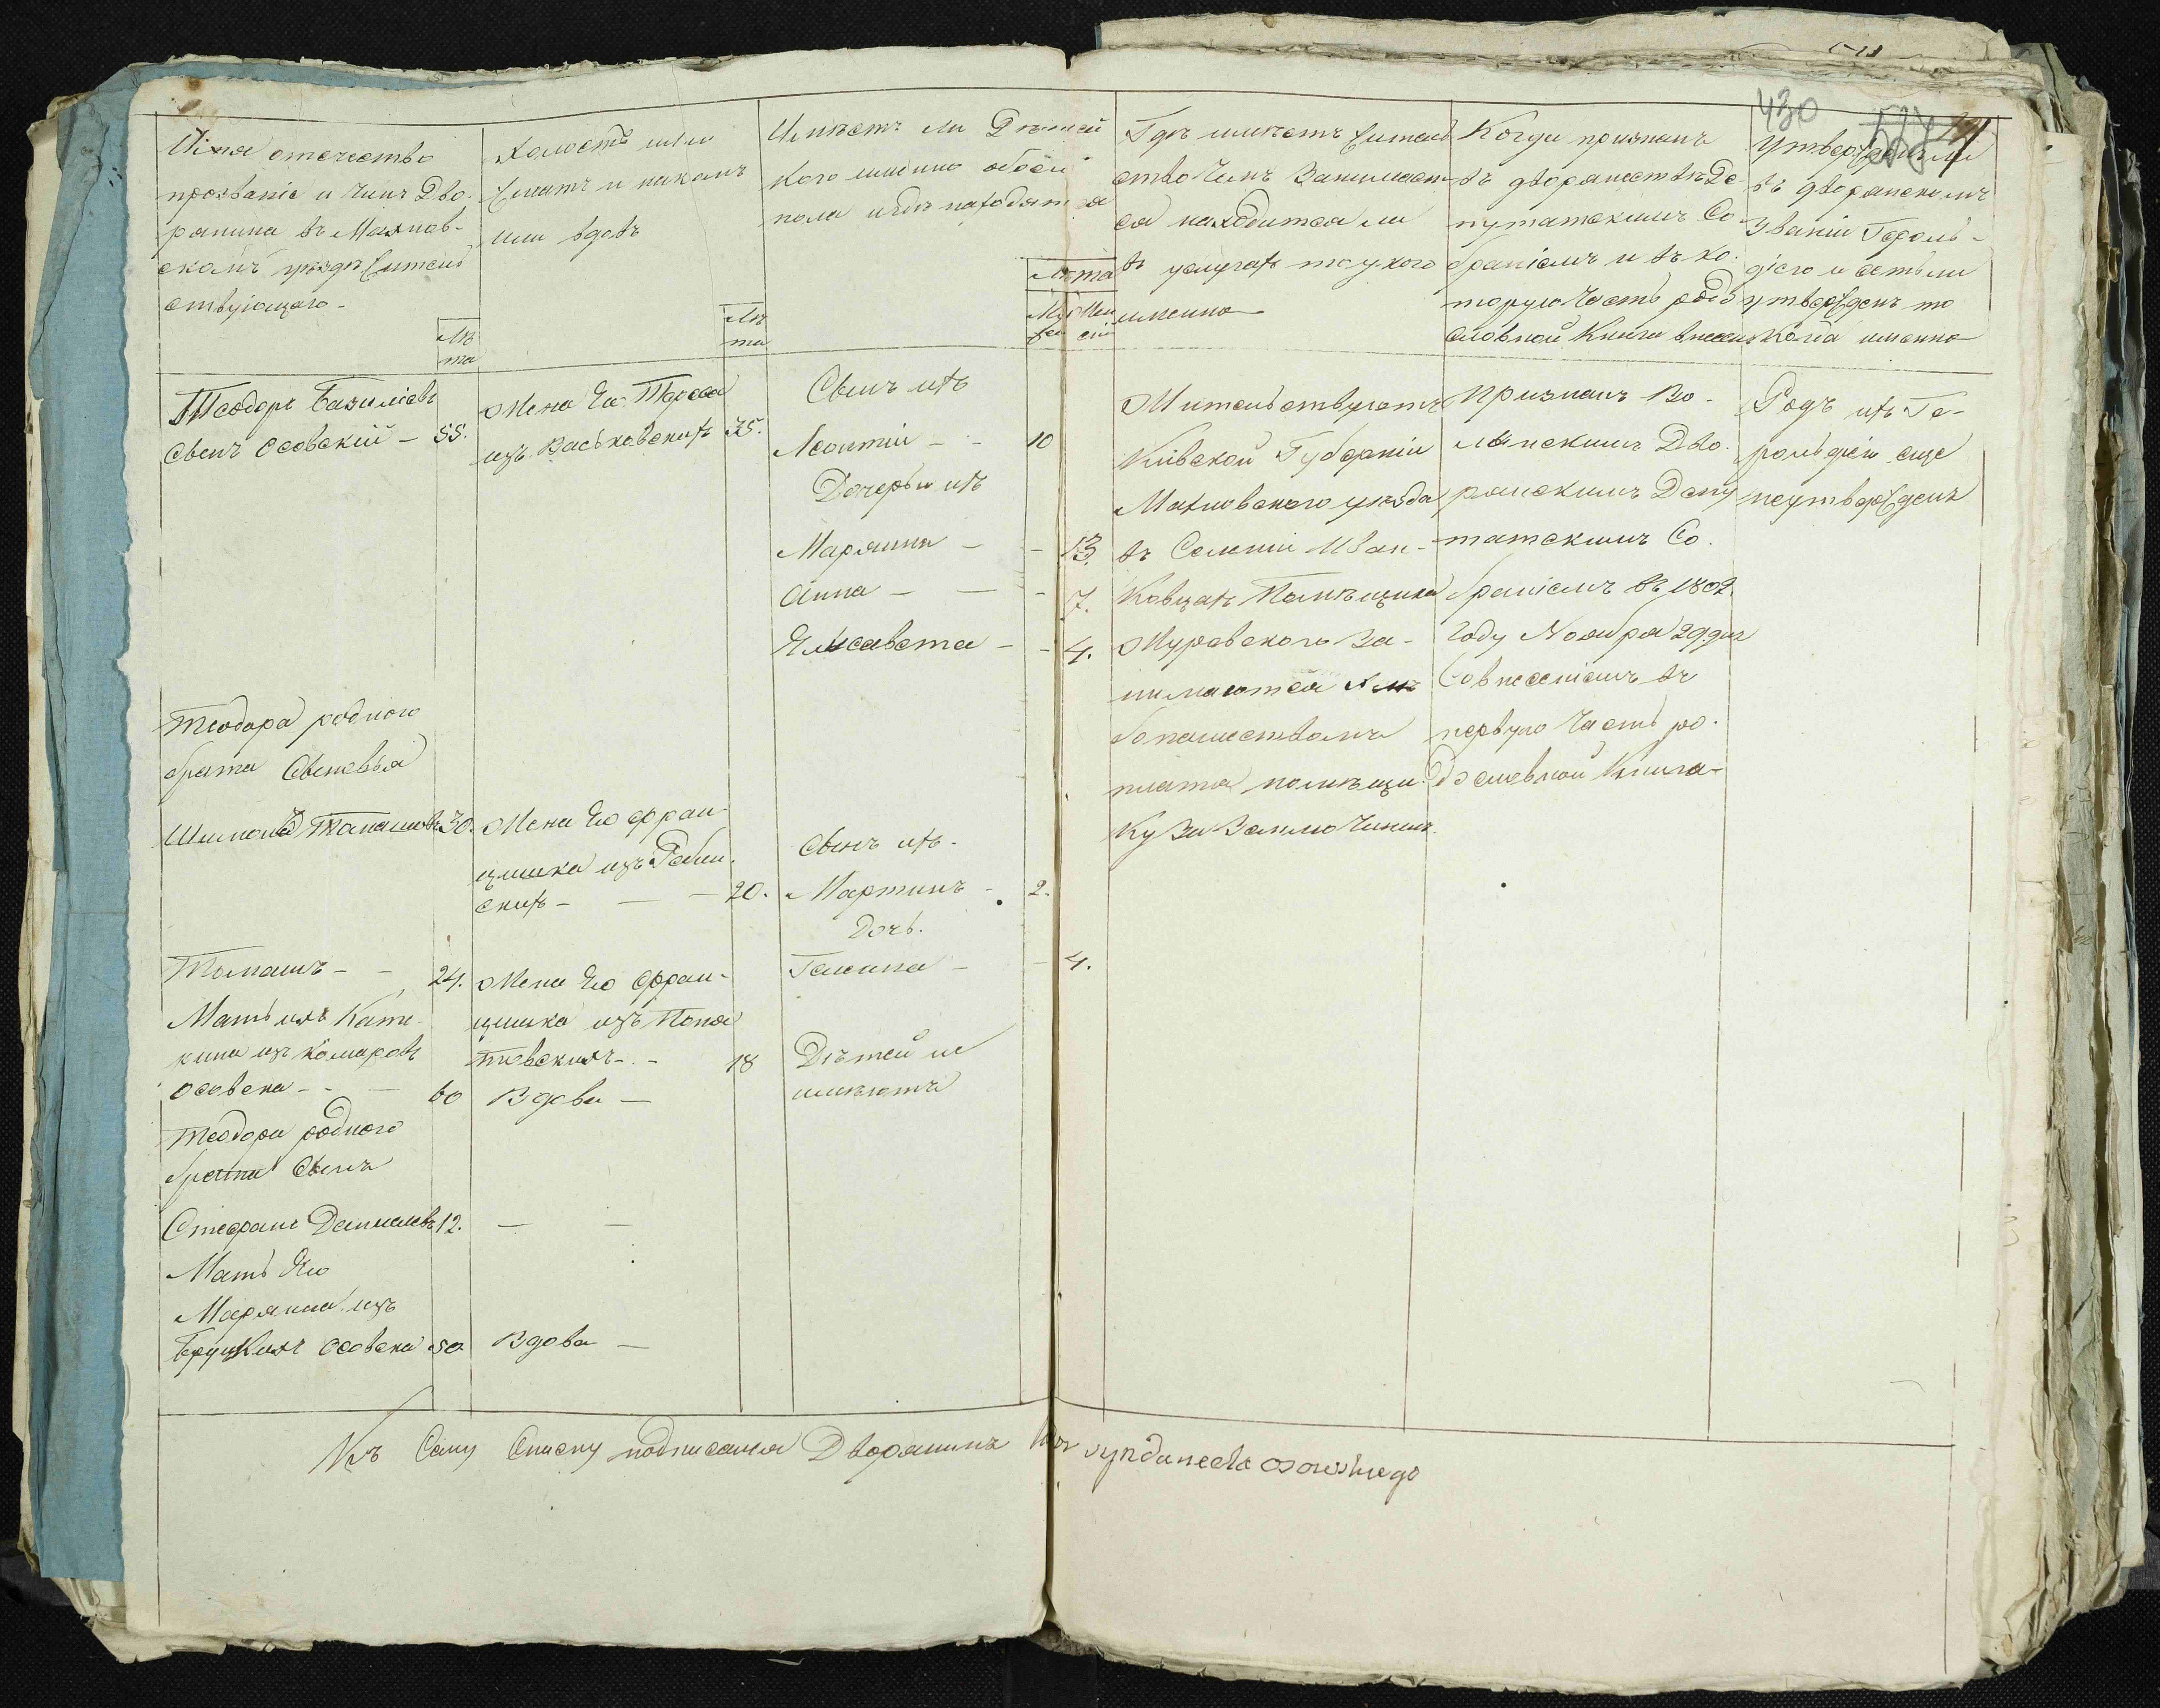 430
527
Имя отечество
прозваніе и чинъ Дво-
рянина въ Махнов-
скомъ уѣздѣ житель
ствующаго -
Лѣ
та
Холостъ или
женатъ и на комъ
или вдовъ
Лѣ
та
Имѣетъ ли Дѣтей
кого имянно обоего
пола и гдѣ находятся
Лѣта
Муж Жен
ска скій
Гдѣ имѣетъ житель
ство Чемъ Занимает
ся находится ли
въ услугахъ то у кого
имянно
Когда признанъ
въ дворянствѣ Де-
путатскимъ Со-
браніемъ и въ ко-
торую Часть родо
словной Книги внесенъ
Утвержденъ ли
въ дворянскомъ
званіи Героль-
діею и естьли
утвержденъ то
Когда имянно
Теодоръ Базиліевъ
Сынъ Осовскій - 55.
Жена Его Тереса
изъ Васьковскихъ 35.
Сынъ ихъ
Леонтій - - 10
Дочери ихъ
Маріанна - - 13.
Анна - - - 7.
Елисавета - - 4.
Жительствуютъ
Кіевской Губерніи
Махновского уѣзда
въ Селеніи Иван-
ковцахъ Помѣщика
Журавского За-
нимаются хлѣ
бопашествомъ
плата помѣщи-
ку За Землю Чиншъ.
Признанъ Во-
лынскимъ Дво-
рянскимъ Депу
татскимъ Со-
браніемъ въ 1802
Году Ноября 29 дня
Со внесеніемъ въ
первую Часть ро-
дословной Книги
Родъ ихъ Ге-
рольдіею еще
неутвержденъ
Теодора родного
брата Сыновья
Шимонъ Томашовъ 30.
Жена Его Фран-
цишка изъ Рабин-
скихъ - - - 20.
Сынъ ихъ -
Мартинъ - 2.
Дочь.
Галена - - 4.
Томашъ - - 24.
Жена Его Фран-
цишка изъ Поня
товскихъ - - 18
Дѣтей не
имѣютъ
Мать ихъ Кате-
рина изъ Комаровъ
Осовска - - - 60
Вдова -
Теодора родного
брата Сынъ
Стефанъ Данилевъ 12. - -
Мать Его
Маріанна изъ
Осовска 50
Вдова -
Къ Сему Списку подписался Дворянинъ